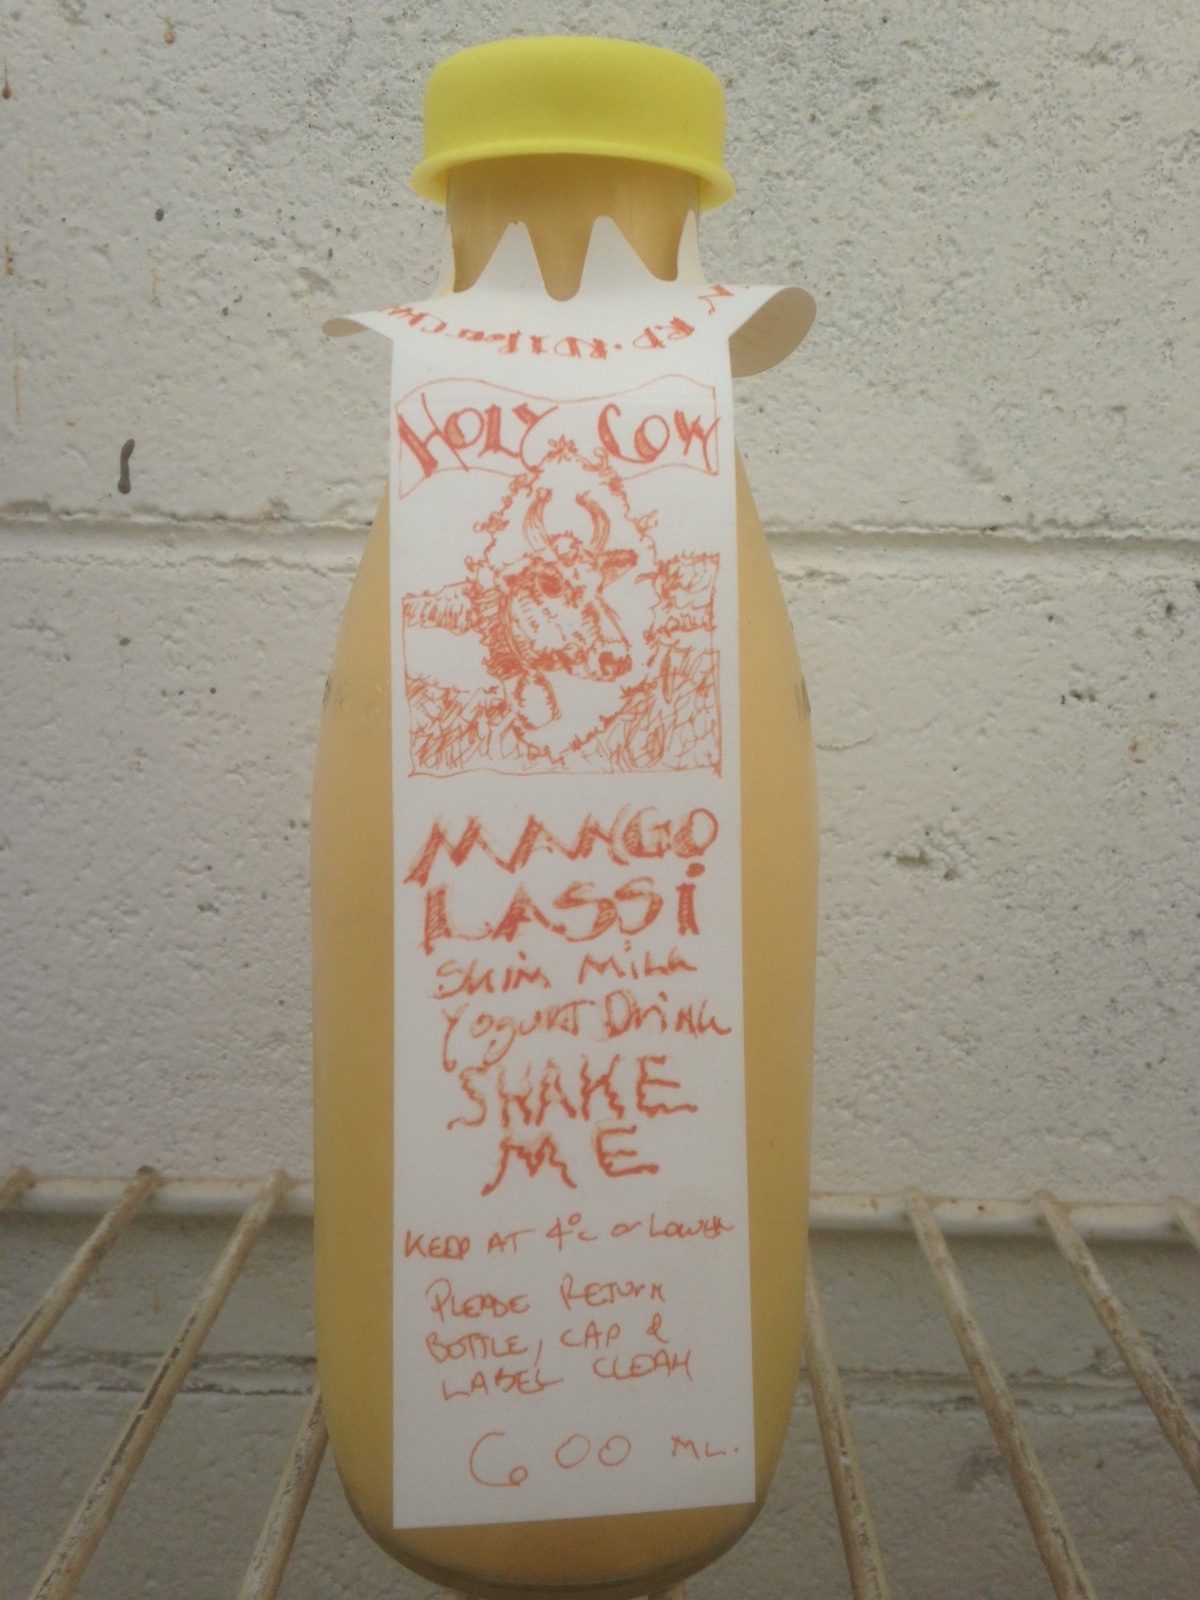 HOLY COW
MANGO
LASSi
Skim Milk
Yogurt Drink
SHAKE
ME
KEEP AT 4°C or Lower
PLEASE RETURN
BOTTLE, CAP &
LABEL CLEAN
600 ML.